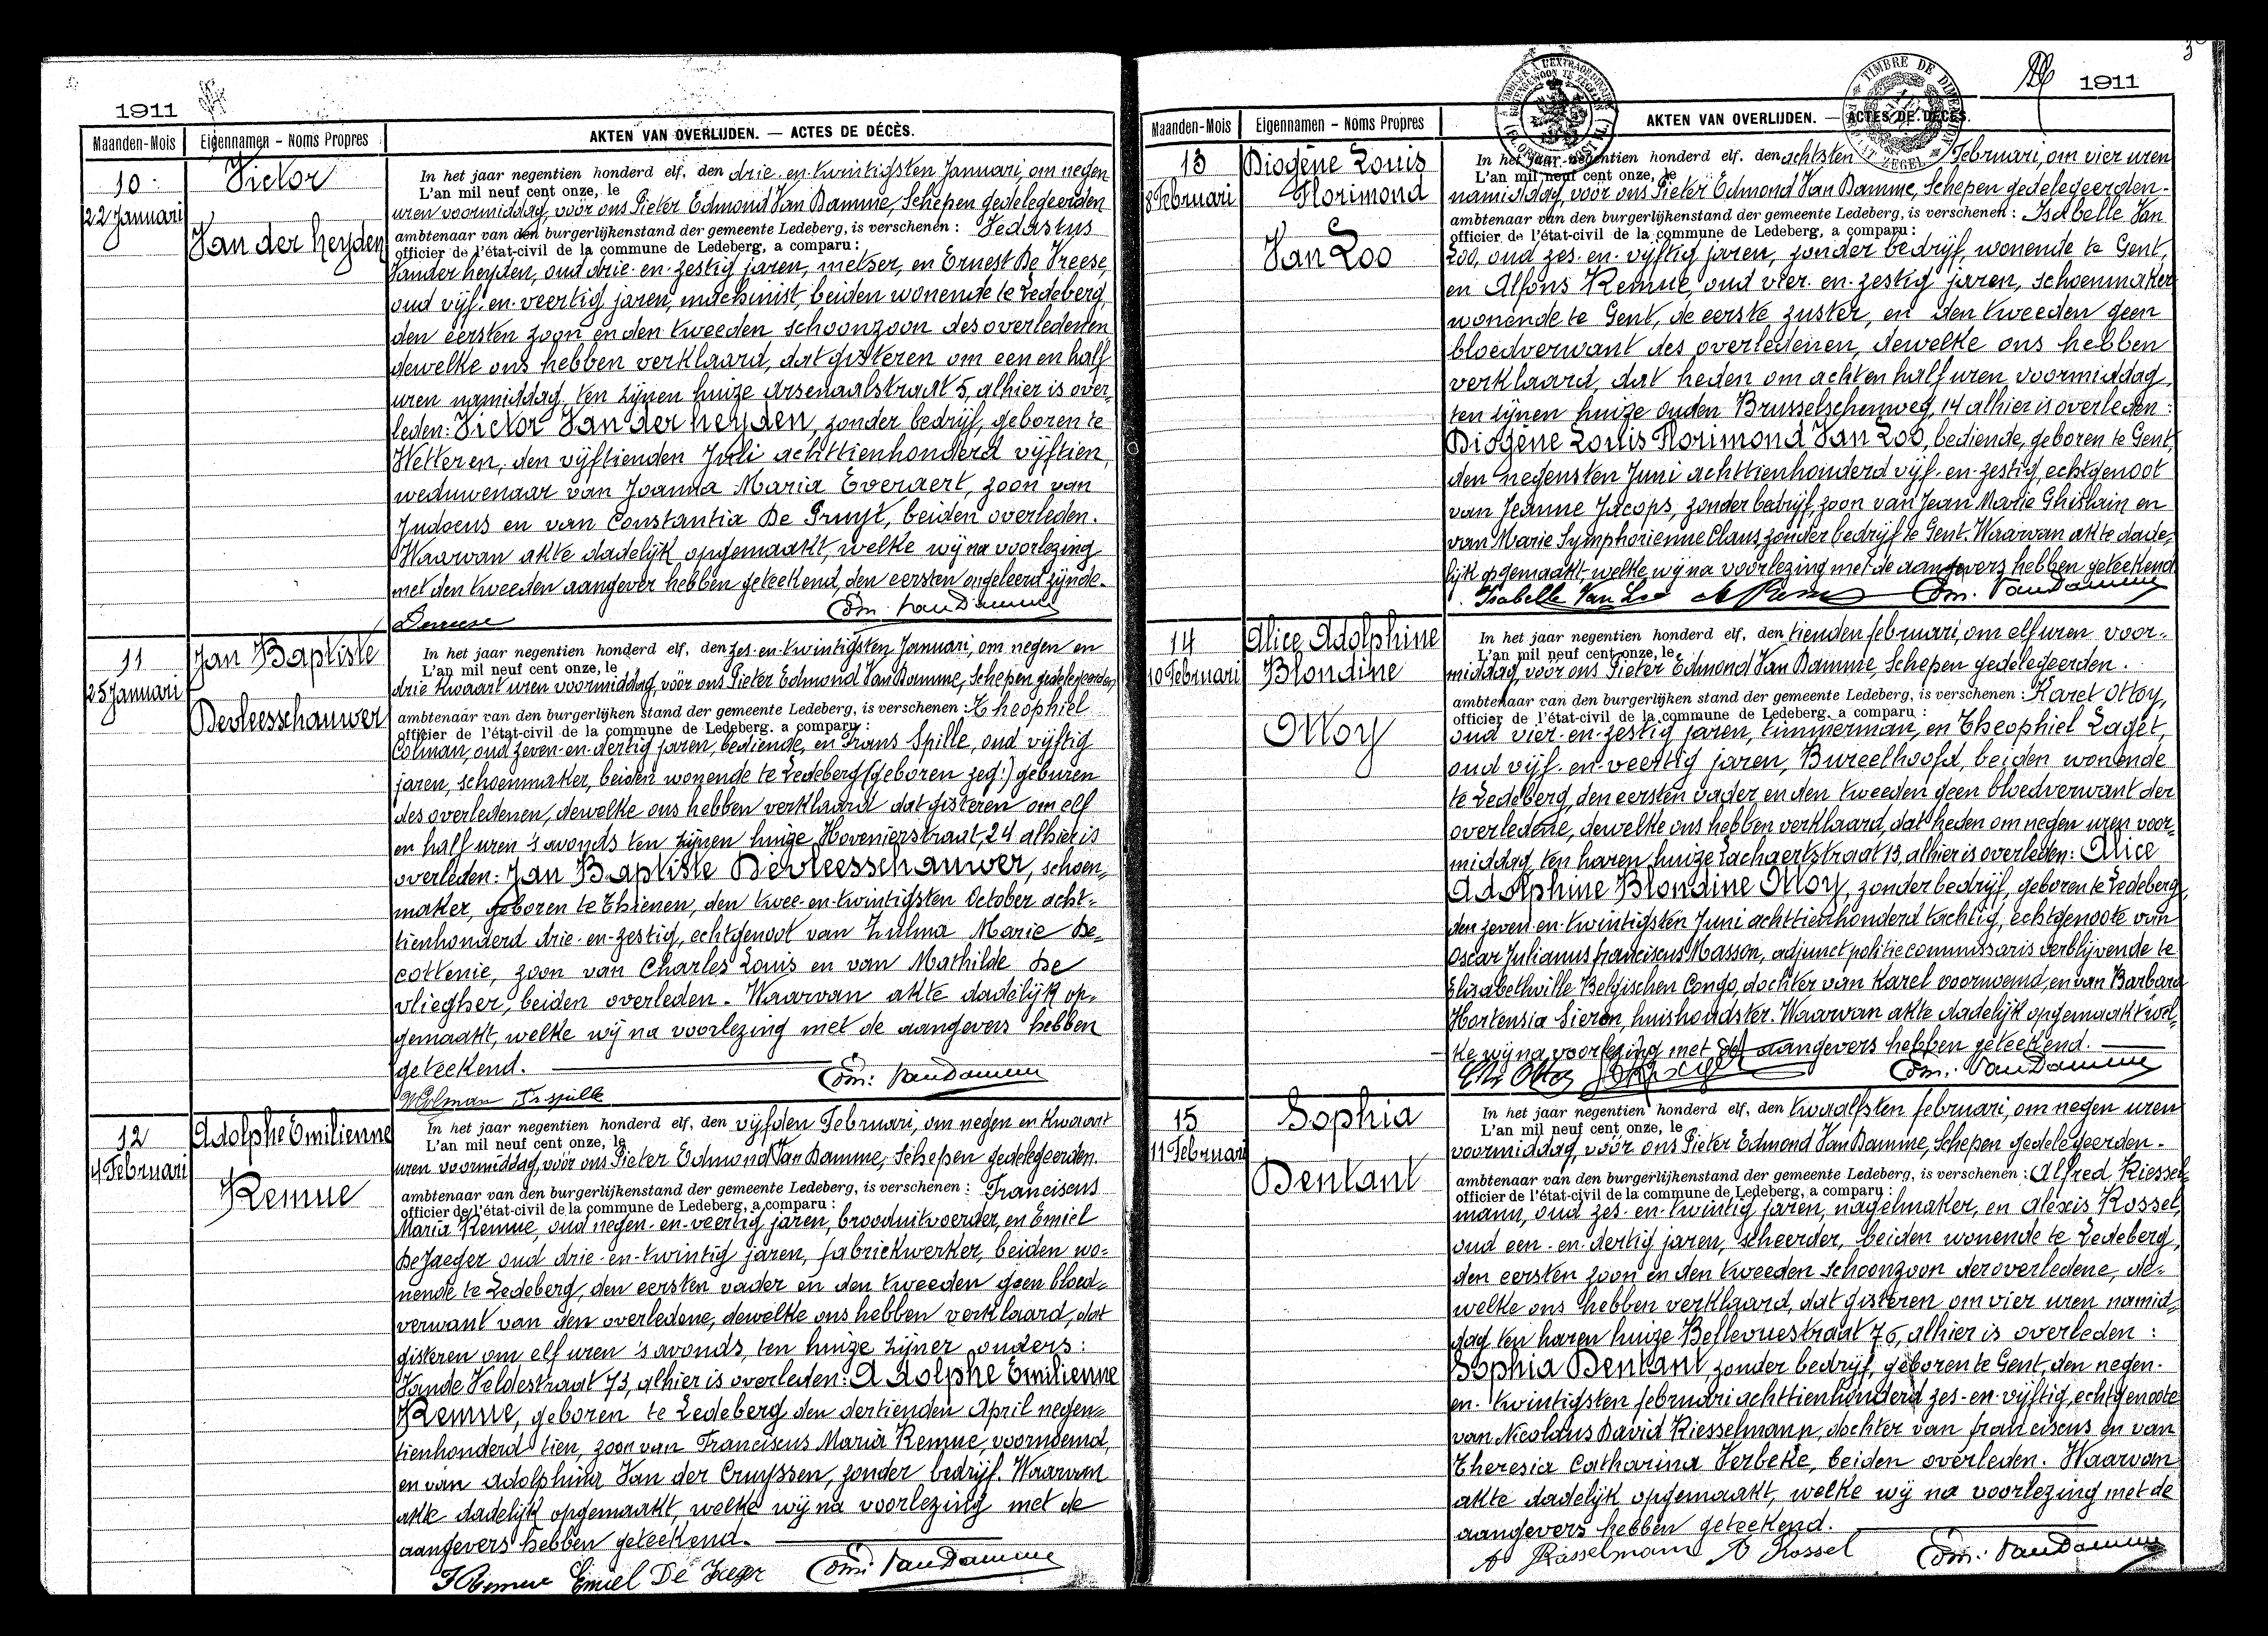 1911
Maanden-Mois
Eigennamen - Noms Propres
AKTEN VAN OVERLIJDEN. — ACTES DE DÉCÈS.
10
22 Januari
Victor
Van der heyden
In het jaar negentien honderd elf, den drie-en-twintigsten Januari, om negen
L'an mil neuf cent onze, le
uren voormiddag, voör ons Pieter Edmond Van Damme, Schepen gedelegeerden
ambtenaar van den burgerlijkenstand der gemeente Ledeberg, is verschenen : Vedastus
officier de l'état-civil de la commune de Ledeberg, a comparu :
Vander heyden, oud drie-en-zestig jaren, metser, en Ernest De Vreese,
oud vijf-en-veertig jaren, machinist, beiden wonende te Ledeberg,
den eersten zoon en den tweeden schoonzoon des overledenen
dewelke ons hebben verklaard, dat gisteren om een en half
uren namiddag, ten zijnen huize Arsenaalstraat 5, alhier is over-
leden: Victor Van der heyden, zonder bedrijf, geboren te
Wetteren, den vijftienden Juli achttienhonderd vijftien,
weduwenaar van Joanna Maria Everaert, zoon van
Judocus en van Constantia De Bruyt, beiden overleden.
Waarvan akte dadelijk opgemaakt, welke wij na voorlezing
met den tweeden aangever hebben geteekend, den eersten ongeleerd zijnde.
Devreese Edm. Van Damme
11
25 Januari
Jan Baptiste
Devleesschauwer
In het jaar negentien honderd elf, den zes-en-twintigsten Januari, om negen en
L'an mil neuf cent onze, le
drie kwaart uren voormiddag, voör ons Pieter Edmond Van Damme, Schepen gedelegeerden
ambtenaar van den burgerlijken stand der gemeente Ledeberg, is verschenen : Theophiel
officier de l'état-civil de la commune de Ledeberg. a comparu :
Colman, oud zeven-en-dertig jaren, bediende, en Frans Spille, oud vijftig
jaren, schoenmaker, beiden wonende te Ledeberg (geboren zeg:) geburen
des overledenen, dewelke ons hebben verklaard dat gisteren om elf
en half uren 's avonds ten zijnen huize Hovenierstraat, 24 alhier is
overleden: Jan Baptiste Devleesschauwer, schoen-
maker, geboren te Thienen, den twee-en-twintigsten October acht-
tienhonderd drie-en-zestig, echtgenoot van Zulma Marie De-
cottenie, zoon van Charles Louis en van Mathilde De
vliegher, beiden overleden. Waarvan akte dadelijk op-
gemaakt, welke wij na voorlezing met de aangevers hebben
geteekend.
Colman Fr Spille Edm: Van Damme
12
4 Februari
Adolphe Emilienne
Remue
In het jaar negentien honderd elf, den vijfden Februari, om negen en kwaart
L'an mil neuf cent onze, le
uren voormiddag, voör ons Pieter Edmond Van Damme, Schepen gedelegeerden.
ambtenaar van den burgerlijkenstand der gemeente Ledeberg, is verschenen : Franciscus
officier de l'état-civil de la commune de Ledeberg, a comparu :
Maria Remue, oud negen-en-veertig jaren, brooduitvoerder, en Emiel
De Jaeger oud drie-en-twintig jaren, fabriekwerker, beiden wo-
nende te Ledeberg, den eersten vader en den tweeden geen bloed-
verwant van den overledene, dewelke ons hebben verklaard, dat
gisteren om elf uren 's avonds, ten huize zijner ouders:
Vande Veldestraat 73, alhier is overleden: Adolphe Emilienne
Remue, geboren te Ledeberg den dertienden April negen-
tienhonderd tien, zoon van Franciscus Maria Remue, voornoemd,
en van Adolphina Van der Cruyssen, zonder bedrijf. Waarvan
akte dadelijk opgemaakt, welke wij na voorlezing met de
aangevers hebben geteekend.
F Remue Emiel De Jaeger Edm: Van Damme
1911
Maanden-Mois
Eigennamen - Noms Propres
AKTEN VAN OVERLIJDEN. — ACTES DE DÉCÈS.
TIMBRE DE DIMENSION
13
8 Februari
Diogène Louis
Florimond
Van Loo
In het jaar negentien honderd elf. den achtsten Februari, om vier uren
L'an mil neuf cent onze, le
namiddag, voör ons Pieter Edmond Van Damme, Schepen gedelegeerden-
ambtenaar van den burgerlijkenstand der gemeente Ledeberg, is verschenen : Isabelle Van
officier de l'état-civil de la commune de Ledeberg, a comparu :
Loo, oud zes-en-vijftig jaren, zonder bedrijf, wonende te Gent,
en Alfons Remue, oud vier-en-zestig jaren, schoenmaker
wonende te Gent, de eerste zuster, en den tweeden geen
bloedverwant des overledenen, dewelke ons hebben
verklaard, dat heden om acht en half uren voormiddag,
ten zijnen huize ouden Brusselschenweg, 14 alhier is overleden:
Diogène Louis Florimond Van Loo, bediende, geboren te Gent,
den negensten Juni achttienhonderd vijf-en-zestig, echtgenoot
van Jeanne Jacops, zonder bedrijf, zoon van Jean Marie Ghislain en
van Marie Symphorienne Claus, zonder bedrijf te Gent. Waarvan akte dade-
lijk opgemaakt, welke wij na voorlezing met de aangevers hebben geteekend
Isabelle Van Loo Edm. Van Damme
14
10 Februari
Alice Adolphine
Blondine
Ottoy
In het jaar negentien honderd elf, den tienden februari, om elf uren voor-
L'an mil neuf cent onze, le
middag, voör ons Pieter Edmond Van Damme, Schepen gedelegeerden.
ambtenaar van den burgerlijken stand der gemeente Ledeberg, is verschenen : Karel Ottoy,
officier de l'état-civil de la commune de Ledeberg. a comparu :
oud vier-en-zestig jaren, timmerman, en Theophiel Laget,
oud vijf-en-veertig jaren, Bureelhoofd, beiden wonende
te Ledeberg, den eersten vader en den tweeden geen bloedverwant der
overledene, dewelke ons hebben verklaard, dat heden om negen uren voor-
middag, ten haren huize Zachaertstraat 13, alhier is overleden: Alice
Adolphine Blondine Ottoy, zonder bedrijf, geboren te Ledeberg,
den zeven-en-twintigsten Juni achttienhonderd tachtig, echtgenoote van
Oscar Julianus franciscus Masson, adjunct politiecommissaris verblijvende te
Elisabethville Belgischen Congo, dochter van Karel voornoemd, en van Barbara
Hortensia Sieron, huishoudster. Waarvan akte dadelijk opgemaakt wel-
ke wij na voorlezing met de aangevers hebben geteekend.
Ottoy Edm: Van Damme
15
11 Februari
Sophia
Dentant
In het jaar negentien honderd elf, den twaalfsten februari, om negen uren
L'an mil neuf cent onze, le
voormiddag, voör ons Pieter Edmond Van Damme, Schepen gedelegeerden-
ambtenaar van den burgerlijkenstand der gemeente Ledeberg, is verschenen : Alfred Kiessel-
officier de l'état-civil de la commune de Ledeberg, a comparu :
mann, oud zes-en-twintig jaren, nagelmaker, en Alexis Rossel,
oud een-en-dertig jaren, scheerder, beiden wonende te Ledeberg,
den eersten zoon en den tweeden schoonzoon der overledene, de-
welke ons hebben verklaard, dat gisteren om vier uren namid-
dag ten haren huize Bellevuestraat 76, alhier is overleden :
Sophia Dentant, zonder bedrijf, geboren te Gent, den negen-
en-twintigsten februari achttienhonderd zes-en-vijftig, echtgenoote
van Nicolaus David Kiesselmann, dochter van franciscus en van
Theresia Catharina Verbeke, beiden overleden. Waarvan
akte dadelijk opgemaakt, welke wij na voorlezing met de
aangevers hebben geteekend.
A Kiesselmann A Rossel Edm: Van Damme